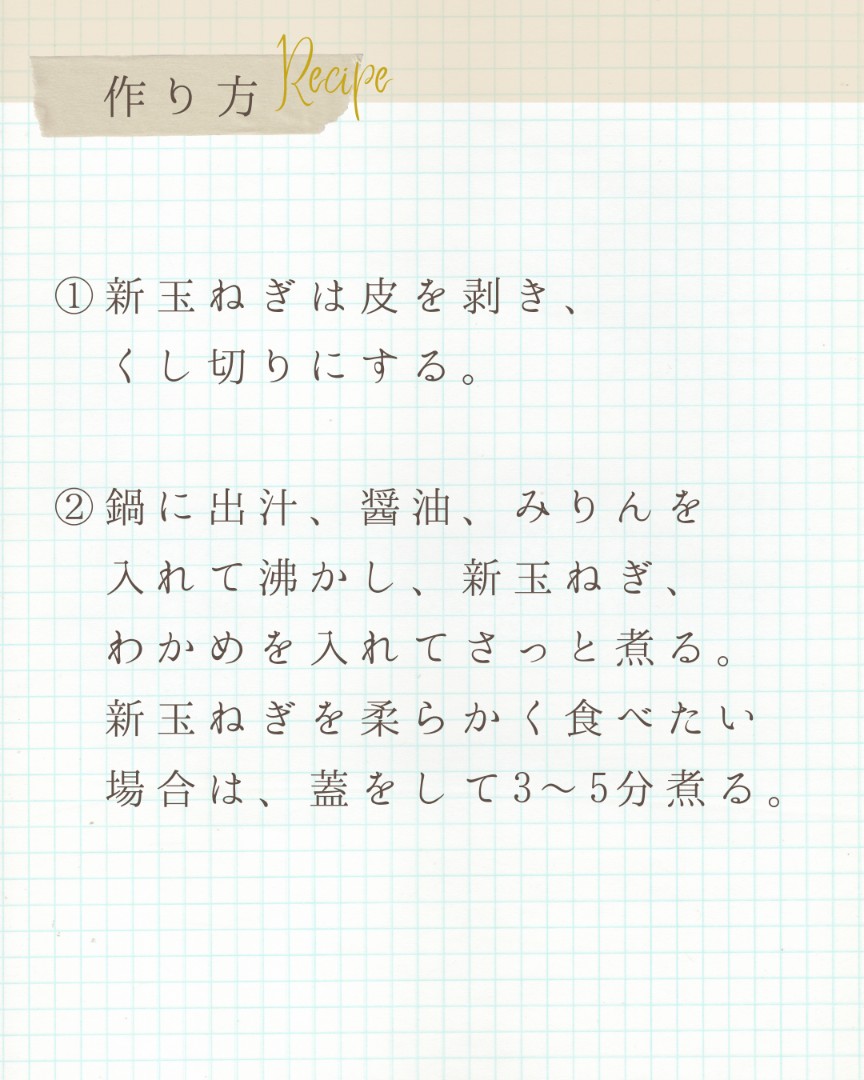 作り方 Recipe
①新玉ねぎは皮を剥き、
くし切りにする。
②鍋に出汁、醤油、みりんを
入れて沸かし、新玉ねぎ、
わかめを入れてさっと煮る。
新玉ねぎを柔らかく食べたい
場合は、蓋をして3〜5分煮る。